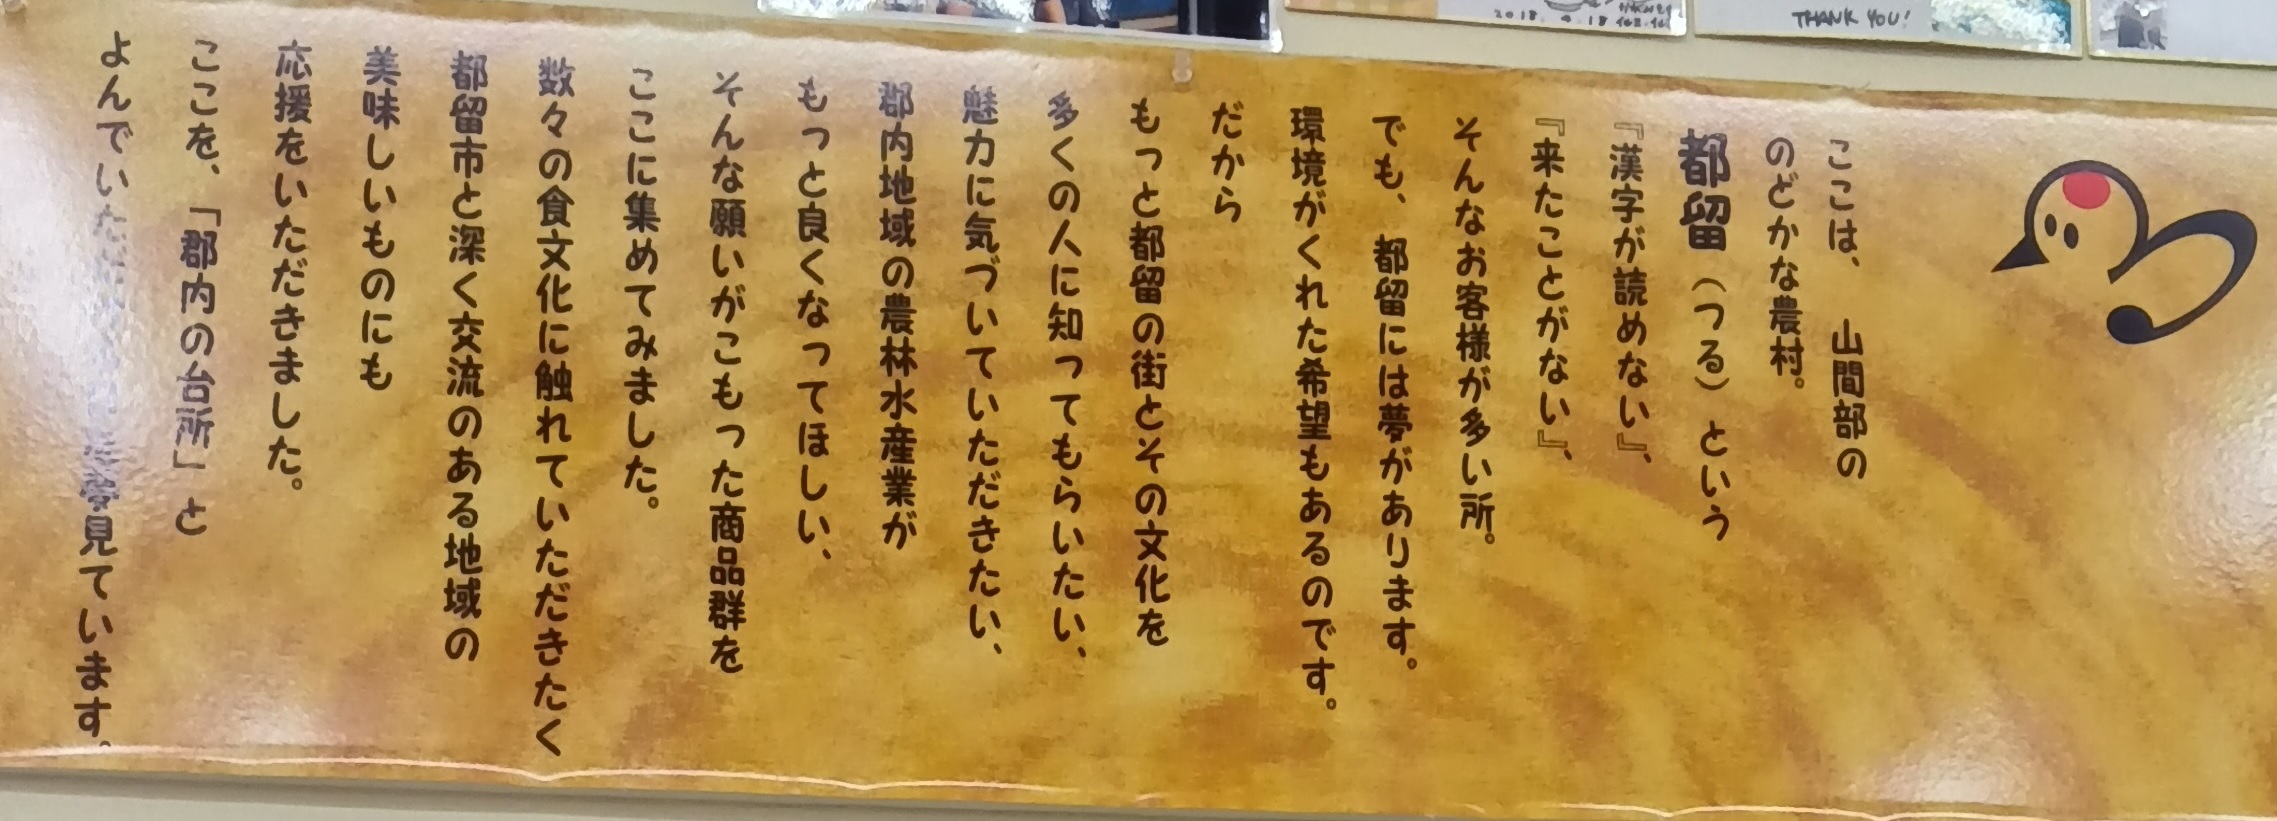 ここは、山間部の
のどかな農村。
都留(つる)という
『漢字が読めない』、
『来たことがない』、
そんなお客様が多い所。
でも、都留には夢があります。
環境がくれた希望もあるのです。
だから
もっと都留の街とその文化を
多くの人に知ってもらいたい、
魅力に気づいていただきたい、
郡内地域の農林水産業が
もっと良くなってほしい、
そんな願いがこもった商品群を
ここに集めてみました。
数々の食文化に触れていただきたく
都留市と深く交流のある地域の
美味しいものにも
応援をいただきました。
ここを、「郡内の台所」と
よんでいた
夢見ています。
2018.
THANK YOU!